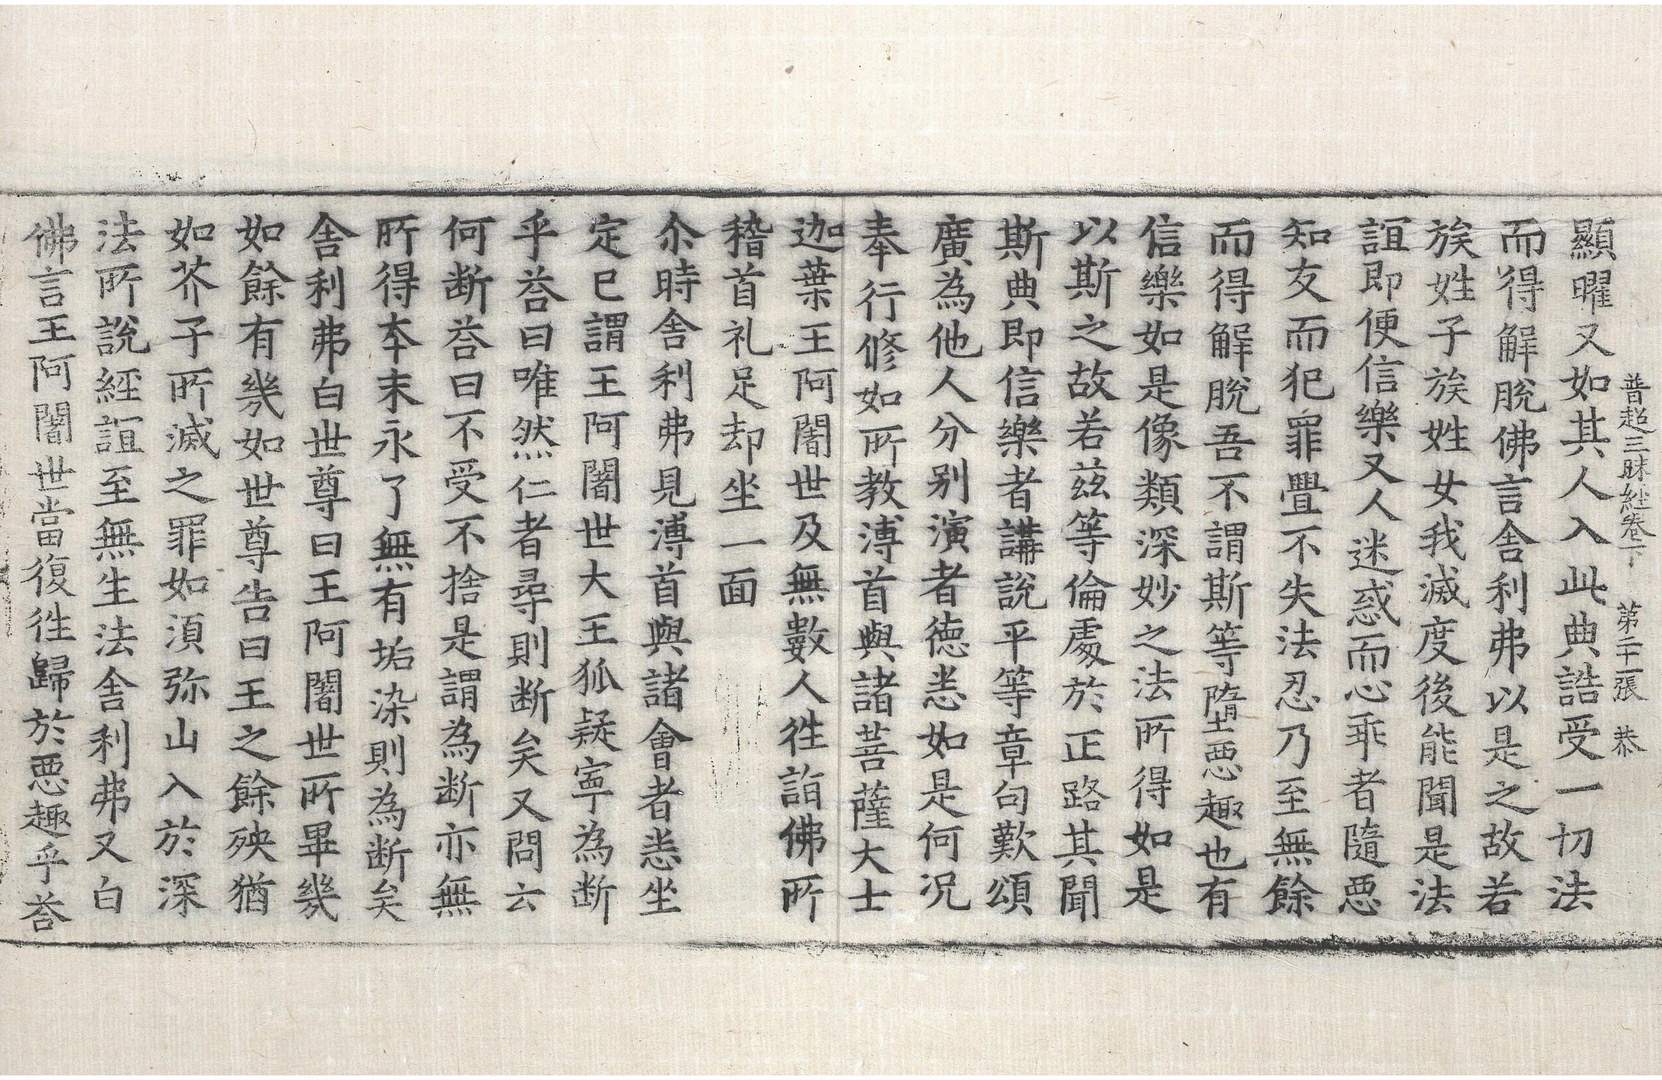 普超三昧経卷下 第二十一張 恭
顯曜又如其人入此典誥受一切法
而得解脫佛言舍利弗以是之故若
族姓子族姓女我滅度後能聞是法
誼即便信樂又人迷惑而心乖者隨惡
知友而犯罪疊不失法忍乃至無餘
而得解脫吾不謂斯等墮惡趣也有
信樂如是像類深妙之法所得如是
以斯之故若茲等倫處於正路其聞
斯典即信樂者講說平等章句歎頌
廣為他人分別演者德恙如是何況
奉行修如所教溥首與諸菩薩大士
迦葉王阿闍世及無數人往詣佛所
稽首礼足却坐一面
尒時舍利弗見溥首與諸會者恙坐
定已謂王阿闍世大王狐疑寧為断
乎荅曰唯然仁者尋則断矣又問云
何断荅曰不受不捨是謂為断亦無
所得本末永了無有垢染則為断矣
舍利弗白世尊曰王阿闍世所畢幾
如餘有幾如世尊告曰王之餘殃猶
如芥子所滅之罪如須弥山入於深
法所說經誼至無生法舍利弗又白
佛言王阿闍世當復往歸於惡趣乎荅